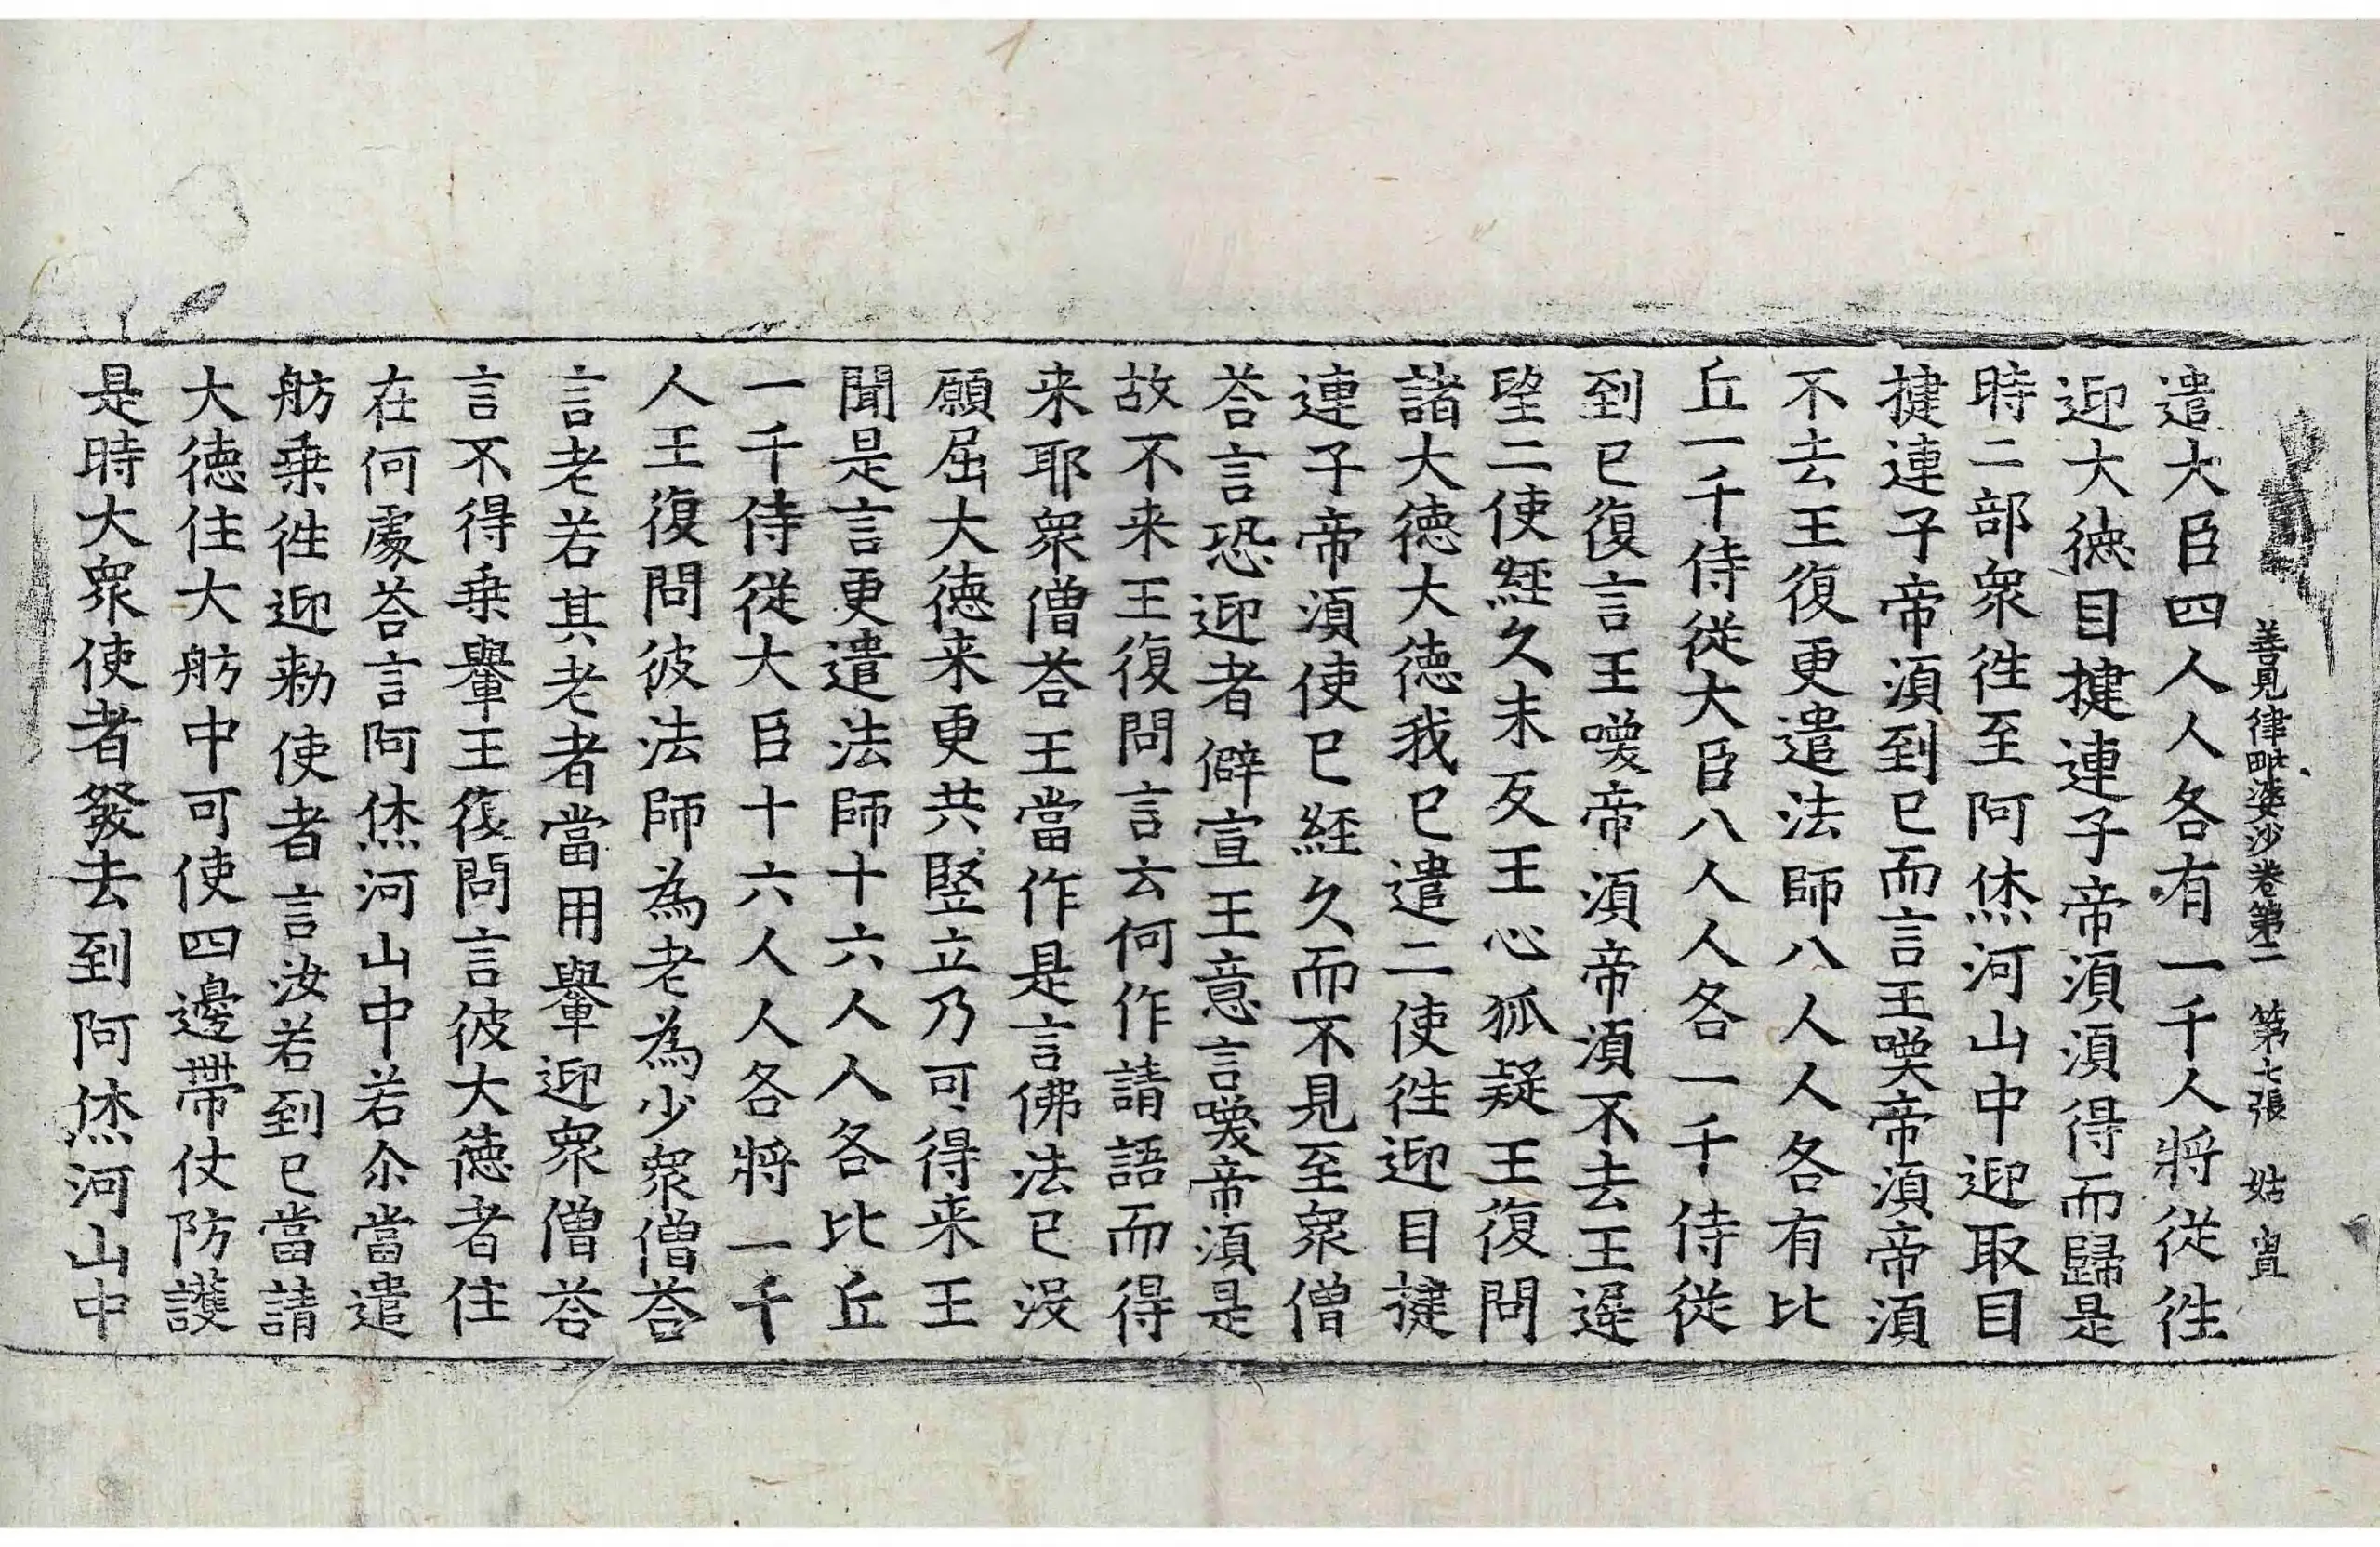 善見律毗婆沙卷第二 第七張 姑
遣大臣四人人各有一千人將從徃
迎大徳目揵連子帝湏湏得而歸是
時二部衆徃至阿烋河山中迎取目
揵連子帝湏到已而言王喚帝湏帝湏
不去王復更遣法師八人人各有比
丘一千侍從大臣八人人各一千侍從
到已復言王喚帝湏帝湏不去王遅
望二使経久未反王心狐疑王復問
諸大徳大徳我已遣二使徃迎目揵
連子帝湏使已経久而不見至衆僧
荅言恐迎者僻宣王意言喚帝湏是
故不来王復問言云何作請語而得
来耶衆僧荅王當作是言佛法已没
願屈大徳来更共竪立乃可得来王
聞是言更遣法師十六人人各比丘
一千侍從大臣十六人人各將一千
人王復問彼法師為老為少衆僧荅
言老老若其老者當用轝迎衆僧荅
言不得乗轝王復問言彼大徳者住
在何處荅言阿烋河山中若尒當遣
舫乗徃迎勑使者言汝若到已當請
大徳住大舫中可使四邊帶仗防護
是時大衆使者發去到阿烋河山中